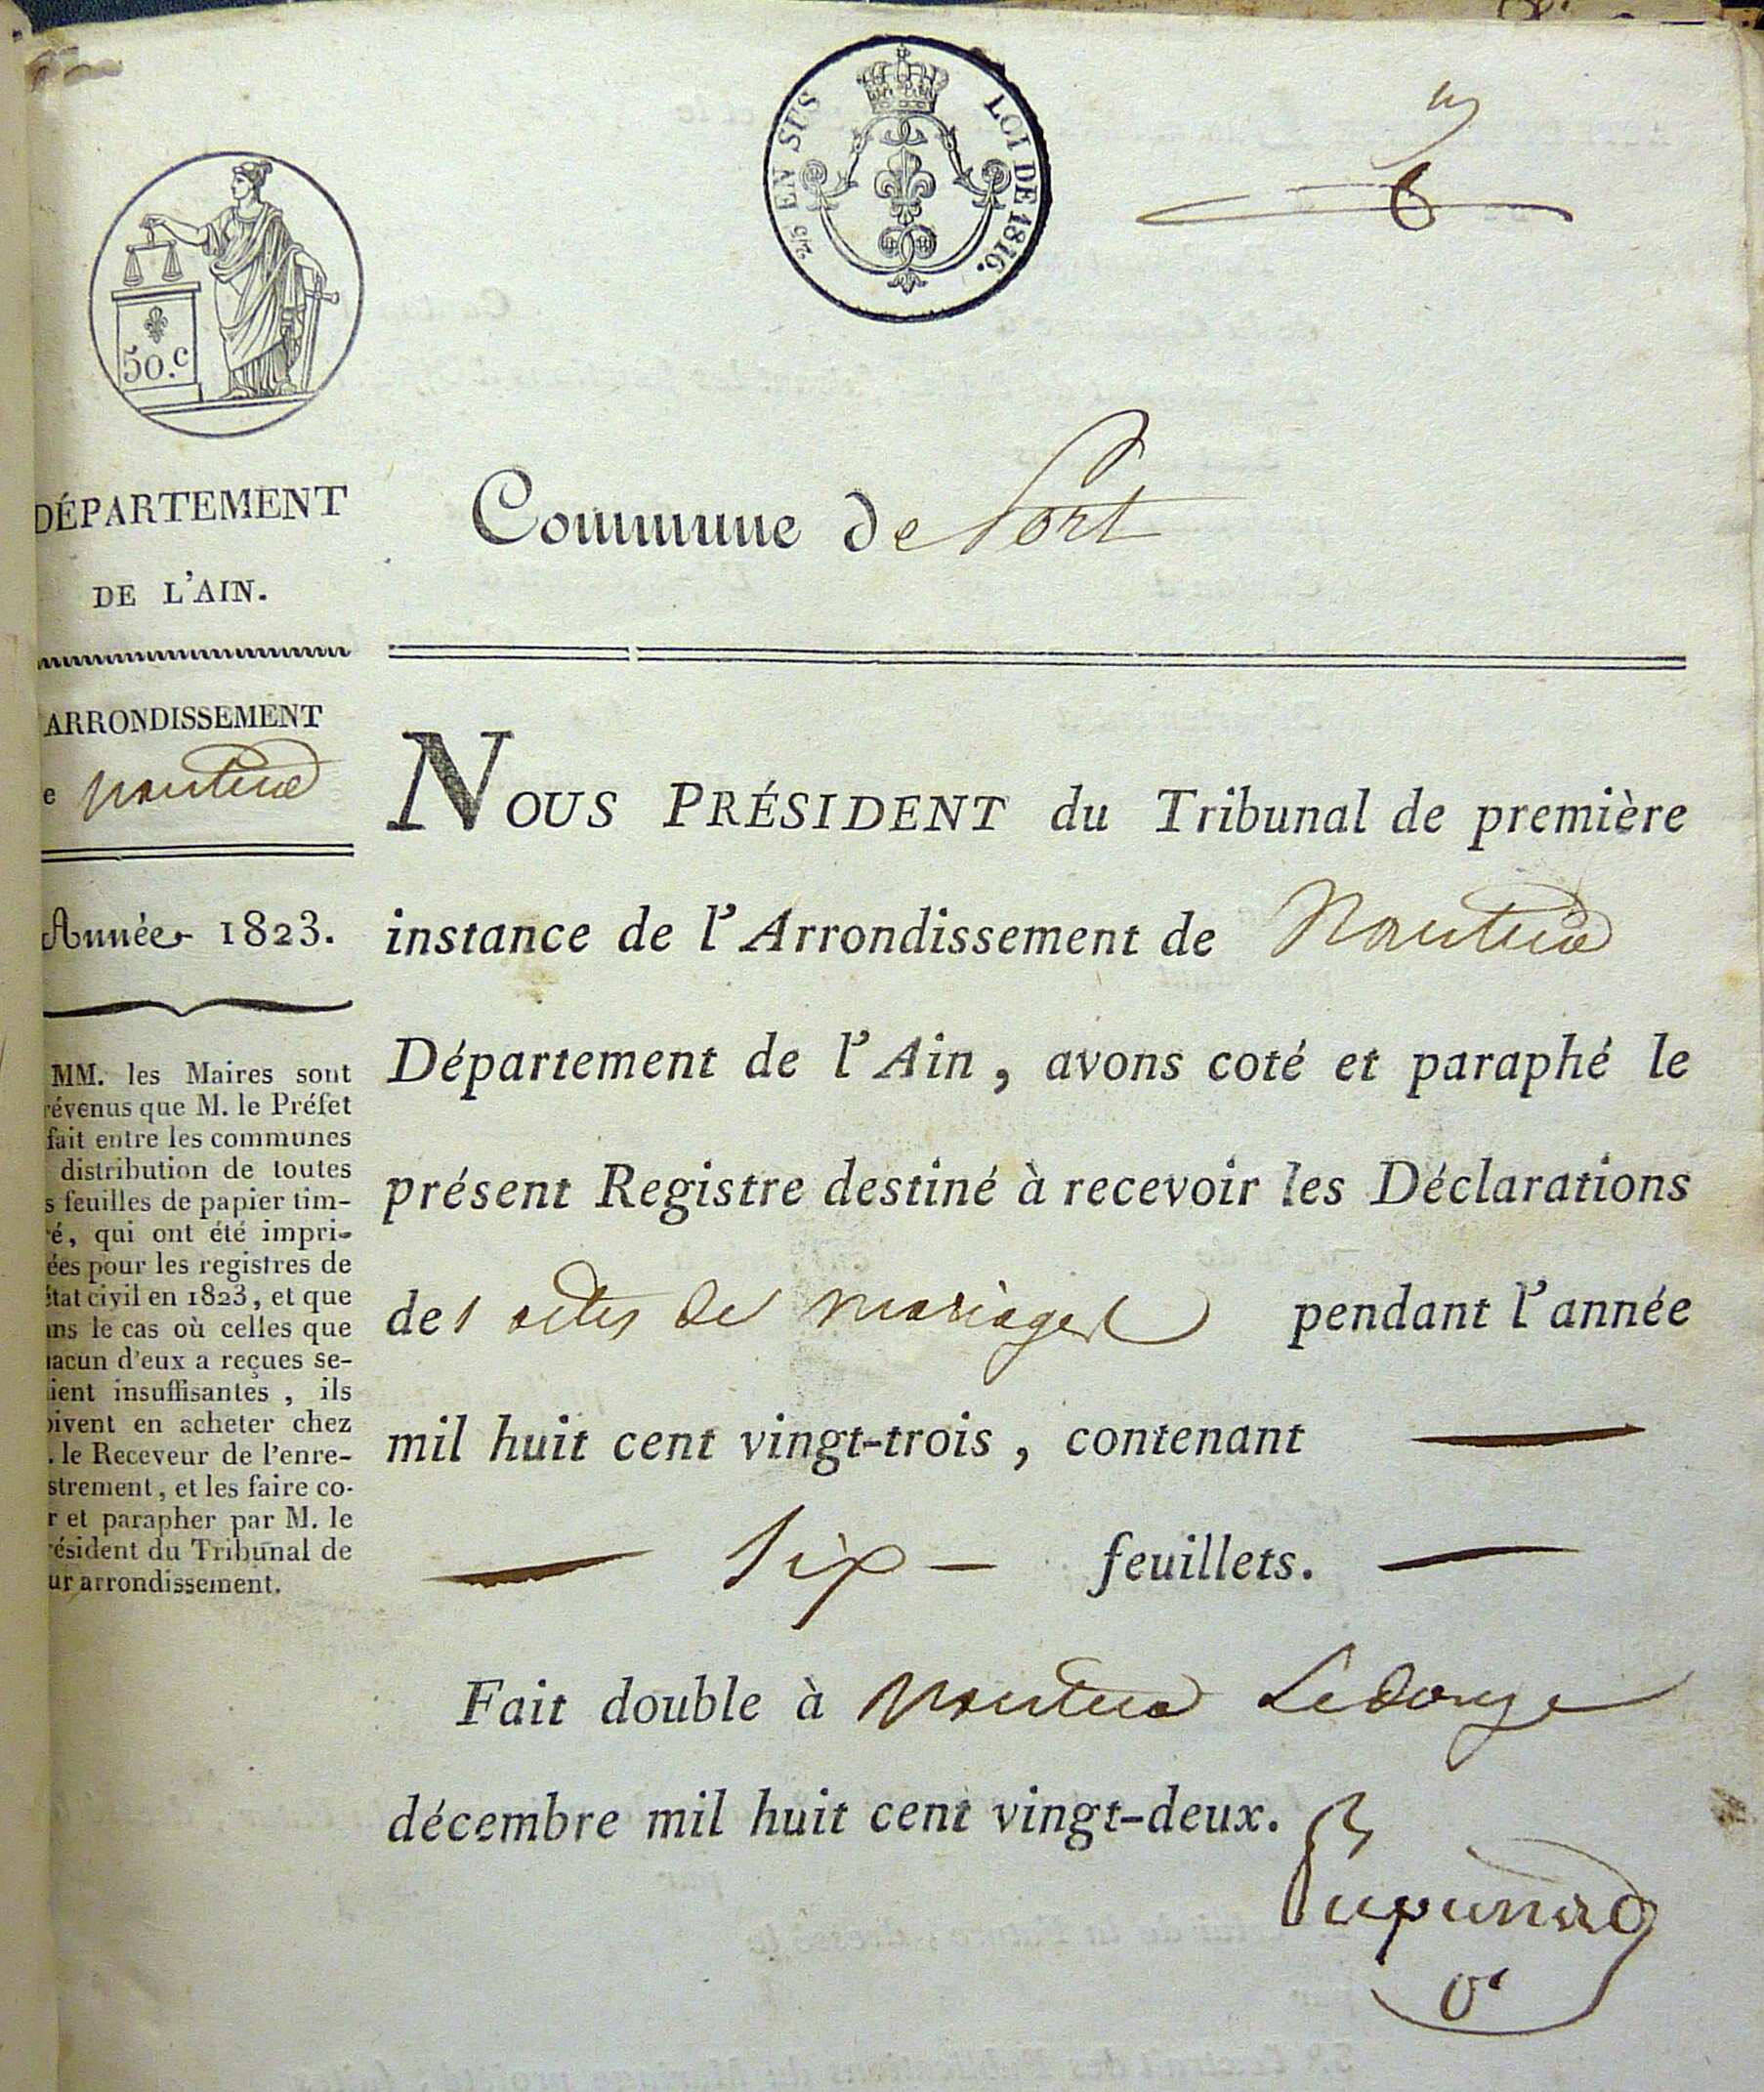 2/5 EN SUS LOI DE 1816.
6
50.c
DÉPARTEMENT
DE L'AIN.
ARRONDISSEMENT
e nantua
Année 1823.
MM. les Maires sont
révenus que M. le Préfet
fait entre les communes
distribution de toutes
s feuilles de papier tim-
ré, qui ont été impri-
ées pour les registres de
état civil en 1823, et que
ans le cas où celles que
hacun d'eux a reçues se-
ient insuffisantes, ils
oivent en acheter chez
. le Receveur de l'enre-
strement, et les faire co-
r et parapher par M. le
résident du Tribunal de
ur arrondissement.
Commune de Port
NOUS PRÉSIDENT du Tribunal de première
instance de l'Arrondissement de Nantua
Département de l'Ain, avons coté et paraphé le
présent Registre destiné à recevoir les Déclarations
des actes de mariages pendant l'année
mil huit cent vingt-trois, contenant —
— Six — feuillets. —
Fait double à nantua Le douze
décembre mil huit cent vingt-deux.